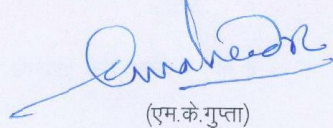 (एम.के.गुप्ता)